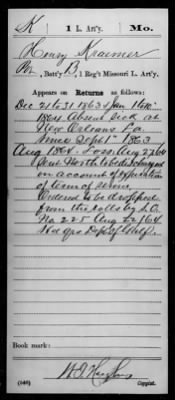 K | 1 L. Art'y. | Mo.
Henry Kraemer
Co. B, 1 Reg't Missouri L. Art'y.
Appears on Returns as follows:
Dec 21 to 31 1863 & Jan 1 to
1864 Absent Sick at
New Orleans La.
since Sept 1" 1863
Aug 1864. Loss Aug 27, 64
North to be discharged
on account of expiration
of term of
Ordered to be dropped
from the rolls by S.O.
No. 225 Aug 22, 64
Hd qrs Dept of Gulf.
Book mark:
(546)
Copyist.